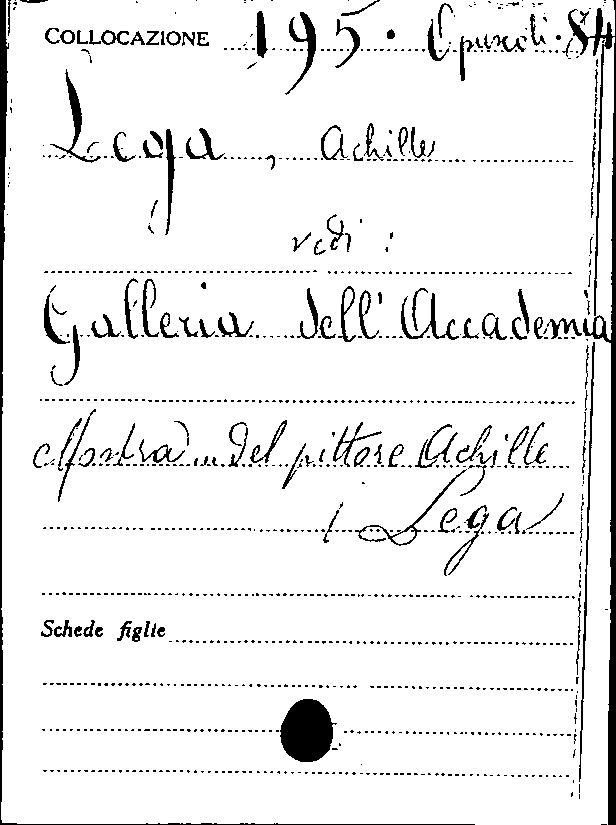 COLLOCAZIONE 195. Opuscoli. 84
Lega, Achille
vedi:
Galleria dell' Accademia
Mostra... del pittore Achille
Lega
Schede figlie